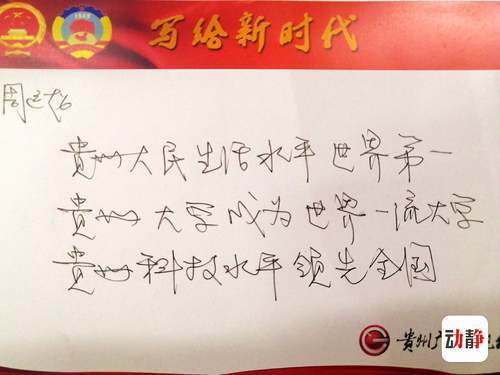 写给新时代
周
貴州人民生活水平世界第一
貴州大学成为世界一流大学
貴州科技水平领先全国
貴州广
动静